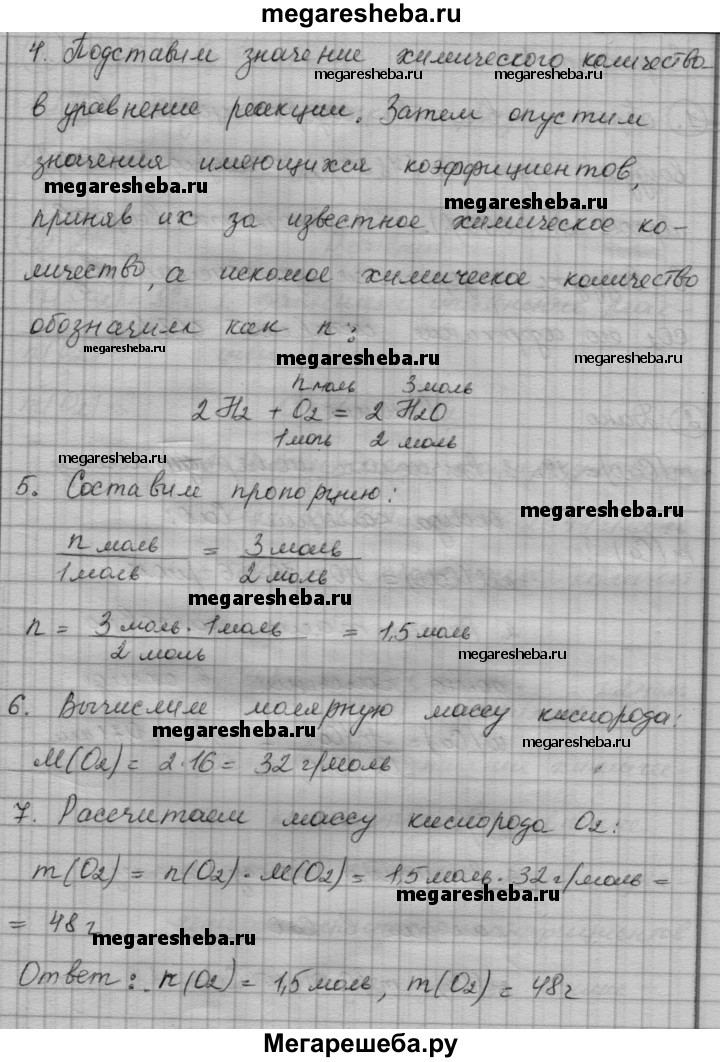 megaresheba.ru
4. Подставим значение химического количества
megaresheba.ru megaresheba.ru
в уравнение реакции. Затем опустим
значения имеющихся коэффициентов,
megaresheba.ru megaresheba.ru
приняв их за известное химическое ко-
личество, а искомое химическое количество
обозначим как n:
megaresheba.ru megaresheba.ru megaresheba.ru
n моль 3 моль
2H2 + O2 = 2 H2O
1 моль 2 моль
megaresheba.ru
5. Составим пропорцию:
megaresheba.ru
n моль / 1 моль = 3 моль / 2 моль
megaresheba.ru
n = 3 моль · 1 моль / 2 моль = 1,5 моль
megaresheba.ru
6. Вычислим молярную массу кислорода:
megaresheba.ru megaresheba.ru
M(O2) = 2·16 = 32 г/моль
7. Рассчитаем массу кислорода O2:
m(O2) = n(O2) · M(O2) = 1,5 моль · 32 г/моль =
megaresheba.ru
= 48 г
megaresheba.ru
Ответ: n(O2) = 1,5 моль, m(O2) = 48 г
Мегарешеба.ру